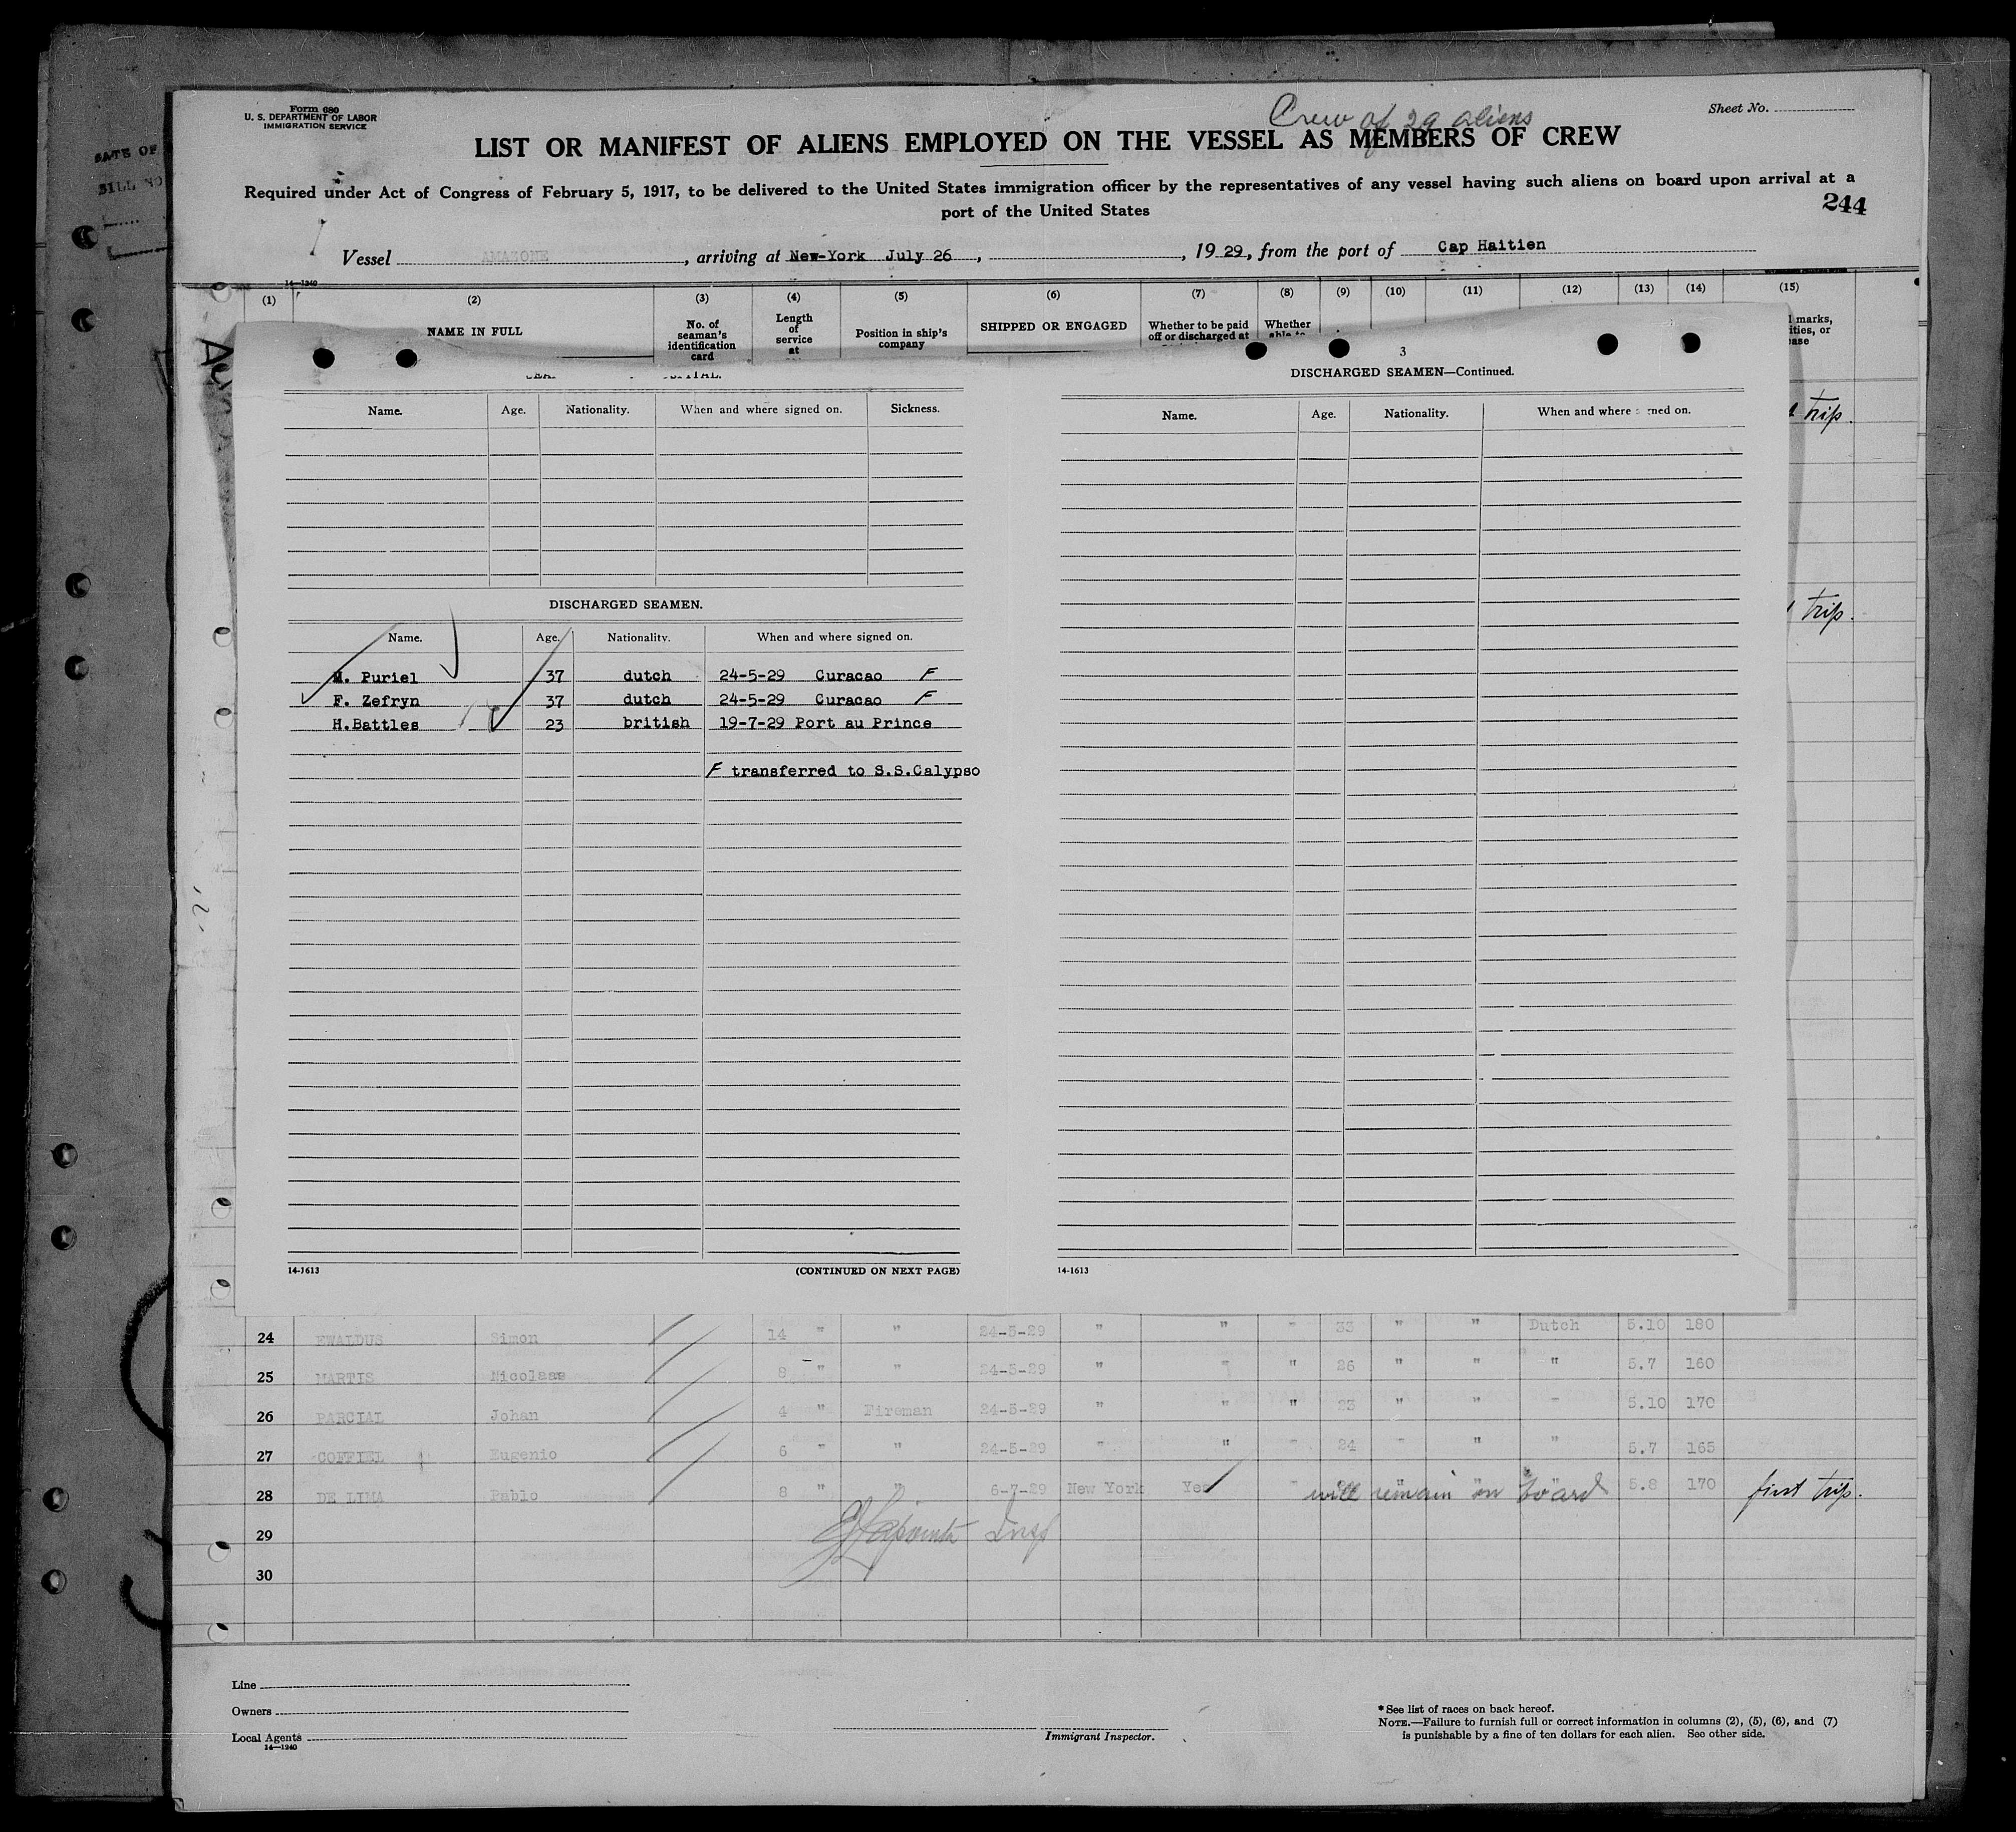 Form 680
U. S. DEPARTMENT OF LABOR
IMMIGRATION SERVICE
Crew of 29 aliens
Sheet No.
LIST OR MANIFEST OF ALIENS EMPLOYED ON THE VESSEL AS MEMBERS OF CREW
Required under Act of Congress of February 5, 1917, to be delivered to the United States immigration officer by the representatives of any vessel having such aliens on board upon arrival at a
port of the United States
244
Vessel AMAZONE, arriving at New-York July 26, , 19 29, from the port of Cap Haitien
14—1240
(1) (2) (3) (4) (5) (6) (7) (8) (9) (10) (11) (12) (13) (14) (15)
NAME IN FULL
No. of seaman's identification card
Length of service at
Position in ship's company
SHIPPED OR ENGAGED
Whether to be paid off or discharged at
Whether able to
marks,
ities, or
ase
trip.
trip.
DATE OF
3
DISCHARGED SEAMEN—Continued.
Name. Age. Nationality. When and where signed on. Sickness.
Name. Age. Nationality. When and where signed on.
DISCHARGED SEAMEN.
Name. Age. Nationality. When and where signed on.
M. Puriel 37 dutch 24-5-29 Curacao F
F. Zefryn 37 dutch 24-5-29 Curacao F
H.Battles 23 british 19-7-29 Port au Prince
F transferred to S.S.Calypso
14-1613 (CONTINUED ON NEXT PAGE)
14-1613
24 EWALDUS Simon 14 " " 24-5-29 " " " 33 " " Dutch 5.10 180
25 MARTIS Nicolaas 8 " " 24-5-29 " " " 26 " " " 5.7 160
26 PARCIAL Johan 4 " Fireman 24-5-29 " " " 23 " " " 5.10 170
27 COFFIEL Eugenio 6 " " 24-5-29 " " " 24 " " " 5.7 165
28 DE LIMA Pablo 8 " " 6-7-29 New York Yes " will remain on board 5.8 170 first trip.
29 Insp
30
Line
Owners
Local Agents
14—1240
Immigrant Inspector.
* See list of races on back hereof.
NOTE.—Failure to furnish full or correct information in columns (2), (5), (6), and (7)
is punishable by a fine of ten dollars for each alien. See other side.